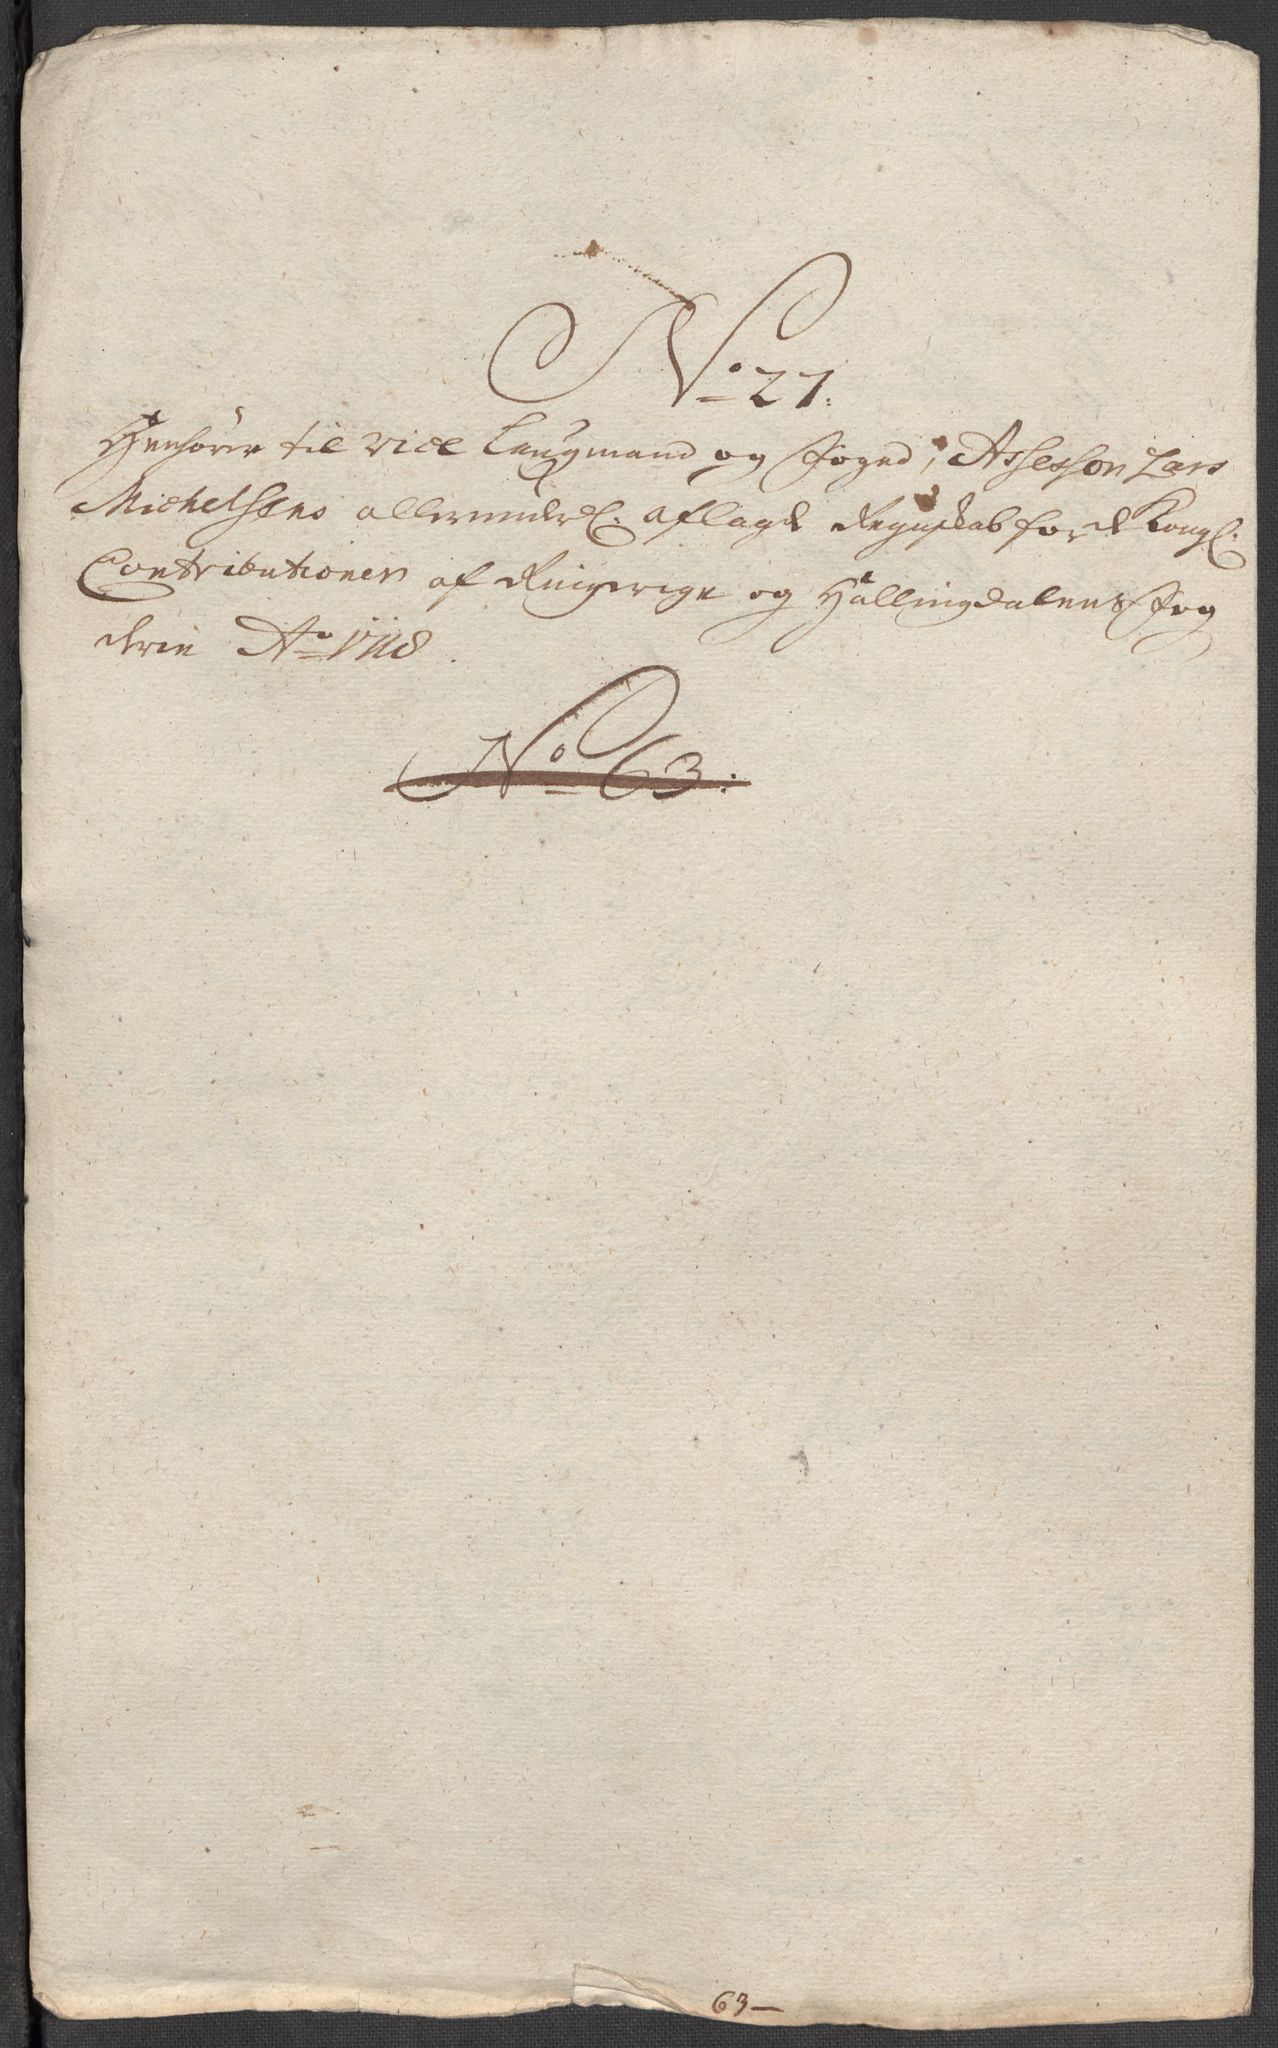 No 27.
Henhörer til vice Laugmand og Foged, Assessor Lars
Michelsens allerunderd. aflagde Regnskab for de Kongl.
Contributioner af Ringerige og Hallingdalens Fog
derie Ao 1718.
No 63:
63 —